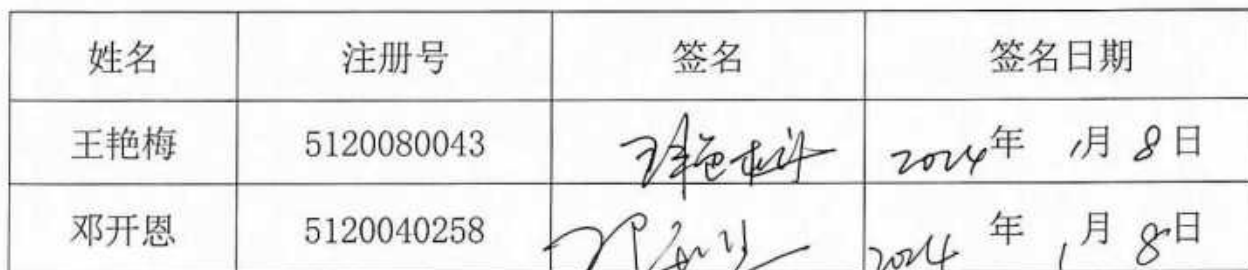 姓名 注册号 签名 签名日期
王艳梅 5120080043 王艳梅 2024年 1月 8日
邓开恩 5120040258 2024年 1月 8日